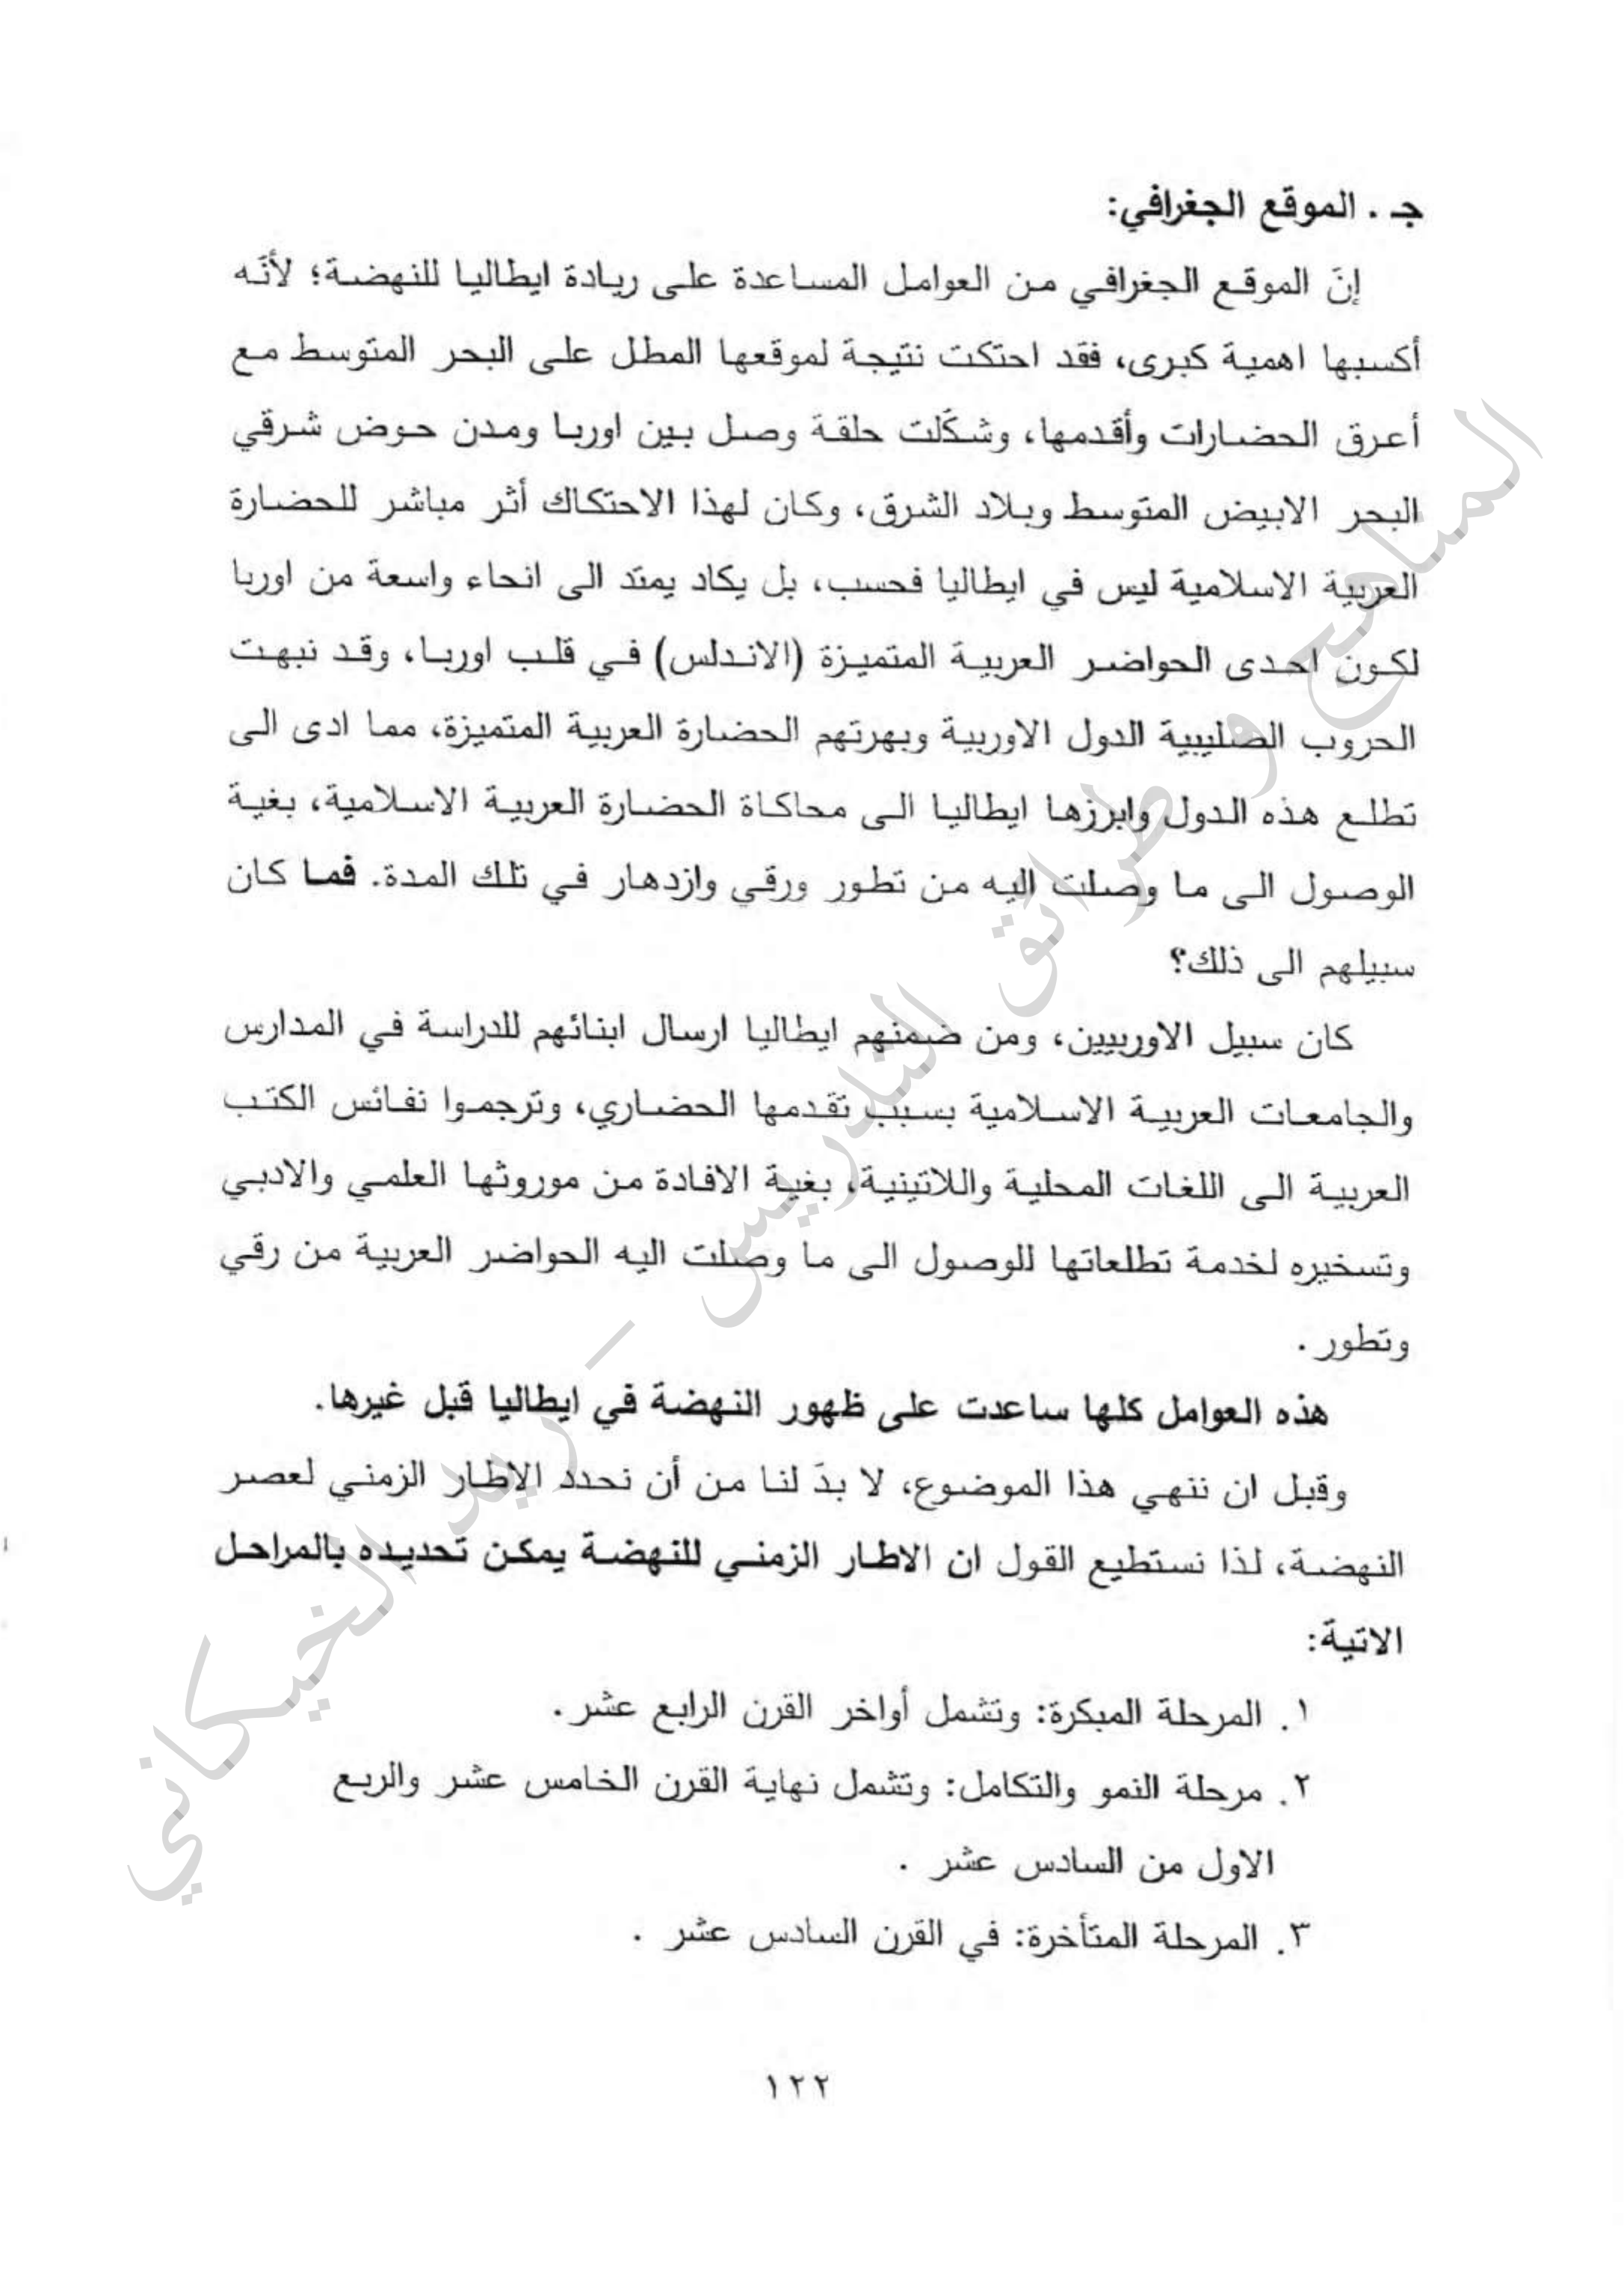 جـ . الموقع الجغرافي:
إنَ الموقع الجغرافي من العوامل المساعدة على ريادة ايطاليا للنهضة؛ لأنَه
أكسبها اهمية كبرى، فقد احتكت نتيجة لموقعها المطل على البحر المتوسط مع
أعرق الحضارات وأقدمها، وشكَلت حلقة وصل بين اوربا ومدن حوض شرقي
البحر الابيض المتوسط وبلاد الشرق، وكان لهذا الاحتكاك أثر مباشر للحضارة
العربية الاسلامية ليس في ايطاليا فحسب، بل يكاد يمتد الى انحاء واسعة من اوربا
لكون احدى الحواضر العربية المتميزة (الاندلس) في قلب اوربا، وقد نبهت
الحروب الصليبية الدول الاوربية وبهرتهم الحضارة العربية المتميزة، مما ادى الى
تطلع هذه الدول وابرزها ايطاليا الى محاكاة الحضارة العربية الاسلامية، بغية
الوصول الى ما وصلت اليه من تطور ورقي وازدهار في تلك المدة. فما كان
سبيلهم الى ذلك؟
كان سبيل الاوربيين، ومن ضمنهم ايطاليا ارسال ابنائهم للدراسة في المدارس
والجامعات العربية الاسلامية بسبب تقدمها الحضاري، وترجموا نفائس الكتب
العربية الى اللغات المحلية واللاتينية، بغية الافادة من موروثها العلمي والادبي
وتسخيره لخدمة تطلعاتها للوصول الى ما وصلت اليه الحواضر العربية من رقي
وتطور .
هذه العوامل كلها ساعدت على ظهور النهضة في ايطاليا قبل غيرها.
وقبل ان ننهي هذا الموضوع، لا بدَ لنا من أن نحدد الإطار الزمني لعصر
النهضة، لذا نستطيع القول ان الاطار الزمني للنهضة يمكن تحديده بالمراحل
الاتية:
١. المرحلة المبكرة: وتشمل أواخر القرن الرابع عشر.
٢. مرحلة النمو والتكامل: وتشمل نهاية القرن الخامس عشر والربع
الاول من السادس عشر .
٣. المرحلة المتأخرة: في القرن السادس عشر .
١٢٢
المناهج و طرائق التدريس – ريد الخيكاني